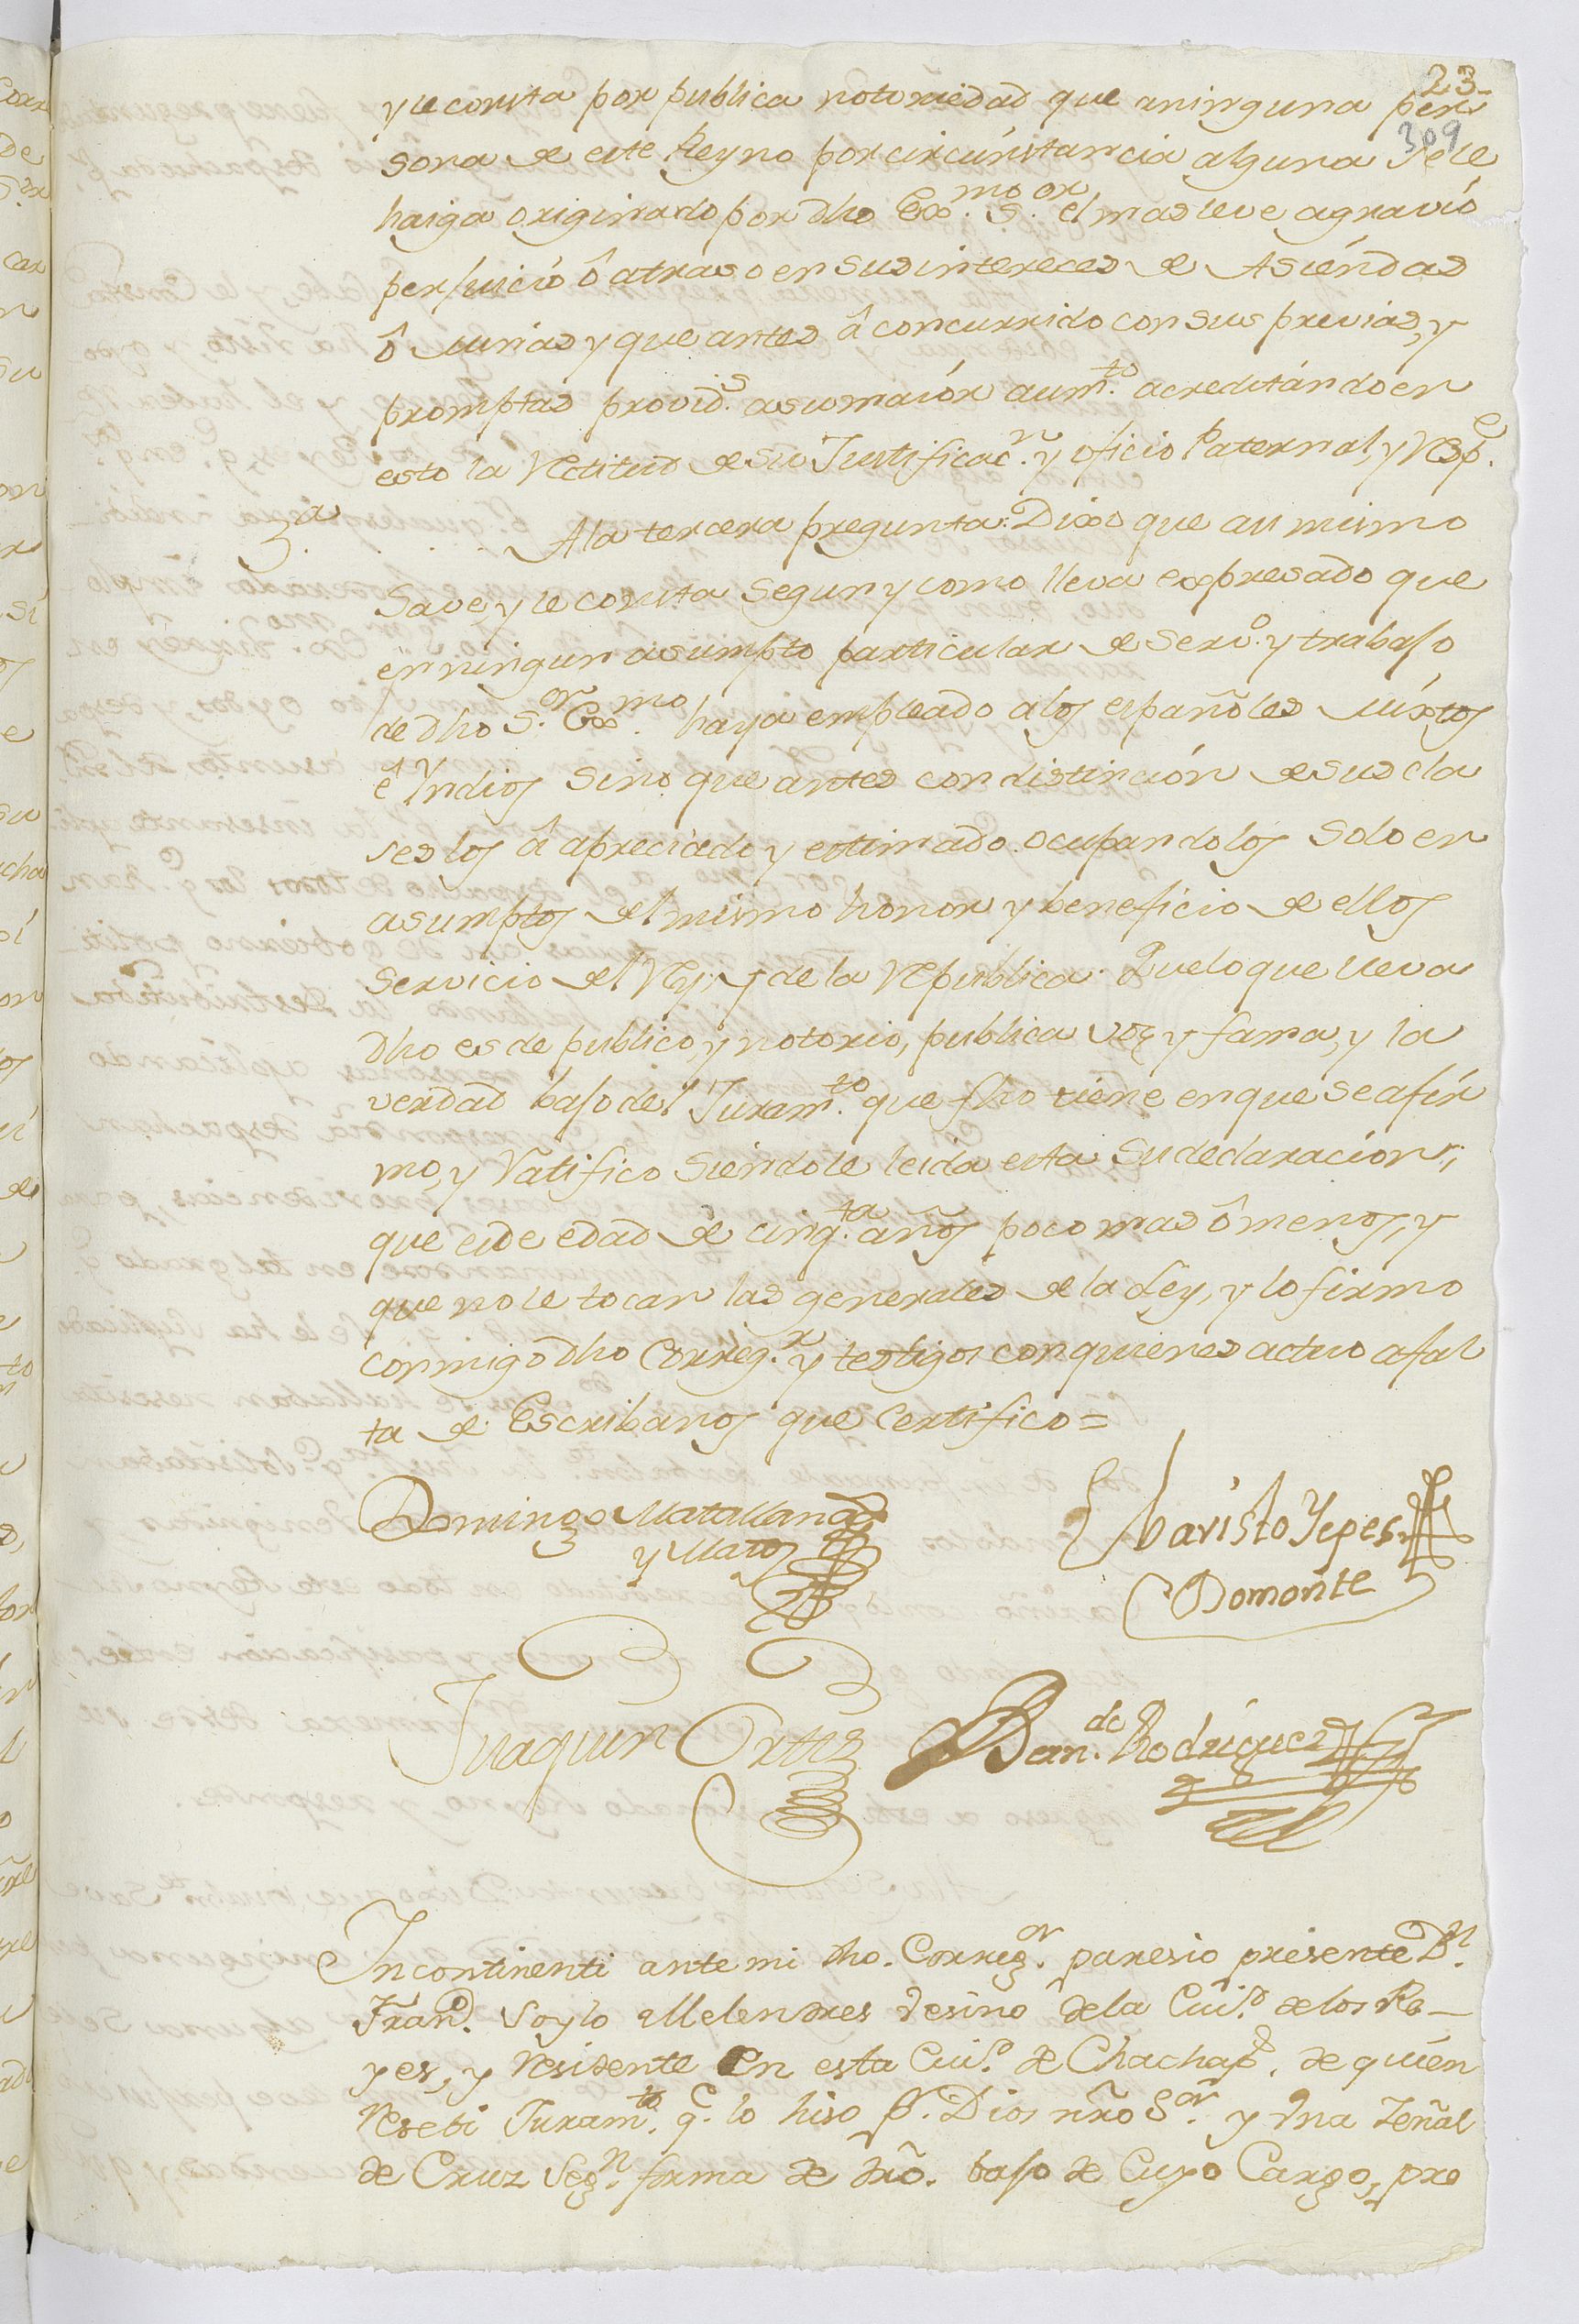 23
309
y le consta por publica notoriedad que aninguna per
sona de este Reyno por circunstancia alguna sele
haiga originado por dho Exmo. Sor. el mas leve agravio
perjuicio ô atraso en sus intereces de Asiendas
ô Minas y que antes â concurrido con sus previas, y
promptas provids. asumaior aumto. acreditando en
esto la Rectitud de su Justificacn. y oficio Paternal, y Respe.
3a. Ala tercera pregunta: Dixo que asi mismo
Save, y le consta segun y como lleva expresado que
en ningun asumpto particular de servo. y trabajo
de dho Sor. Exmo. haya empleado alos españoles Mixtos
ê Yndios sino que antes con distincion desus cla
ses los â apreciado y estimado ocupandolos solo en
asumptos del mismo honor y beneficio de ellos
servicio del Rey, y de la Republica. Que lo que lleva
dho es de publico, y notorio, publica voz y fama, y la
verdad bajo del Juramto. que fho tiene en que se afir
mo, y Ratifico siendole leida esta su declaracion,
que es de edad de cinqta. años poco mas ô menos, y
que no le tocan las generales de la Ley, y lo firmo
conmigo dho Corregr. y testigos con quienes actuo afal
ta de Escribanos que Certifico =
Domingo Matallana
y Matos
Evaristo Yepes
Domonte
Juaquin Ortiz
Berndo. Rodriguez
Incontinenti ante mi dho. Corregor. paresio presente Dn.
Frano. Soylo Melendres vesino de la Cuid. de los Re-
yes, y residente en esta Cuid. de Chachaps. de quien
Resebi Juramto. qe. lo hiso pr. Dios nro Sor. y vna señal
de Cruz segn. forma de dro. bajo de Cuyo Cargo, pro